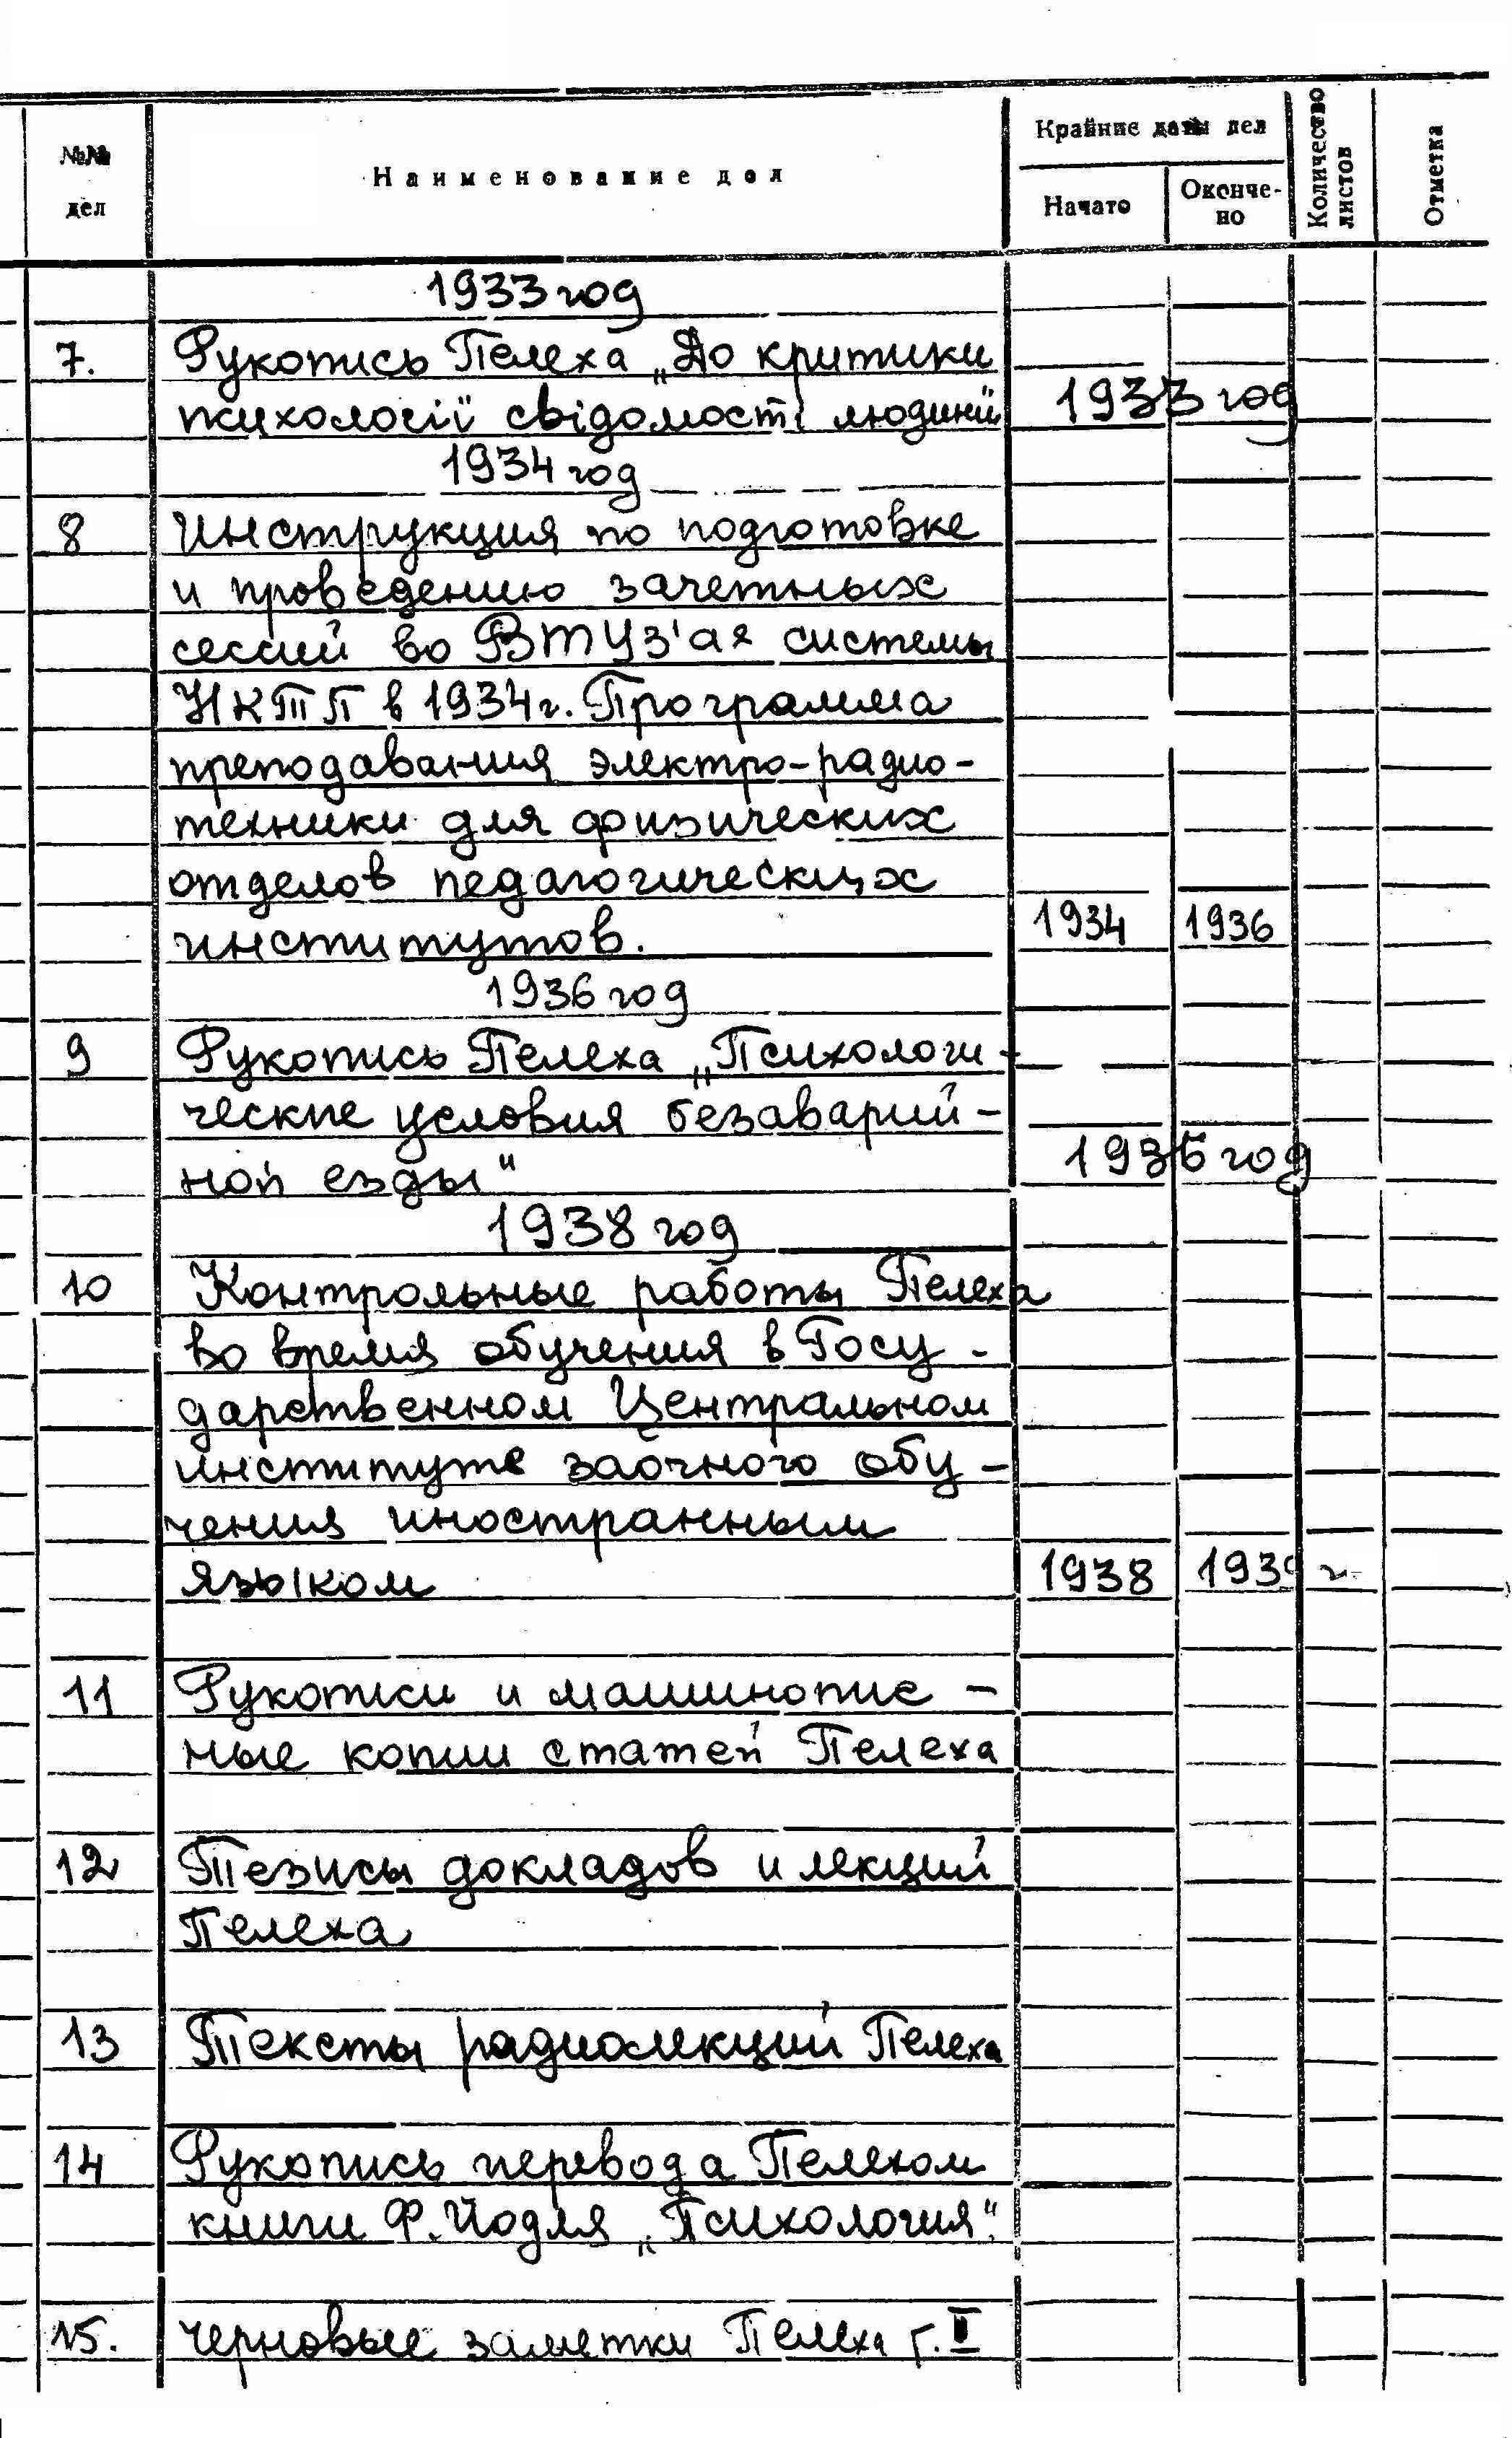 №№ дел
Наименование дел
Крайние даты дел
Начато
Окончено-
но
Количество листов
Отметка
1933 год
7. Рукопись Пелеха „До критики
психології свідомості людини" 1933 год
1934 год
8 Инструкция по подготовке
и проведению зачетных
сессий во ВТУЗ'ах системы
НКТП в 1934 г. Программа
преподавания электро-радио-
техники для физических
отделов педагогических
институтов. 1934 1936
1936 год
9 Рукопись Пелеха „Психологи-
ческие условия безаварий-
ной езды" 1936 год
1938 год
10 Контрольные работы Пелеха
во время обучения в Госу-
дарственном Центральном
институте заочного обу-
чения иностранным
языком 1938 1939 г.
11 Рукописи и машинопис-
ные копии статей Пелеха
12 Тезисы докладов и лекций
Пелеха
13 Тексты радиолекций Пелеха
14 Рукопись перевода Пелехом
книги Ф. Йодля „Психология".
15. Черновые заметки Пелеха г. II